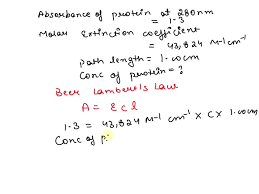 Absorbance of protein at 280nm
= 1.3
Molar Extinction coefficient
= 43,824 M-1 cm-1
path length = 1.00cm
Conc of protein = ?
Beer Lambert's Law
A = ε c l
1.3 = 43,824 M-1 cm-1 × C × 1.00cm
Conc of p